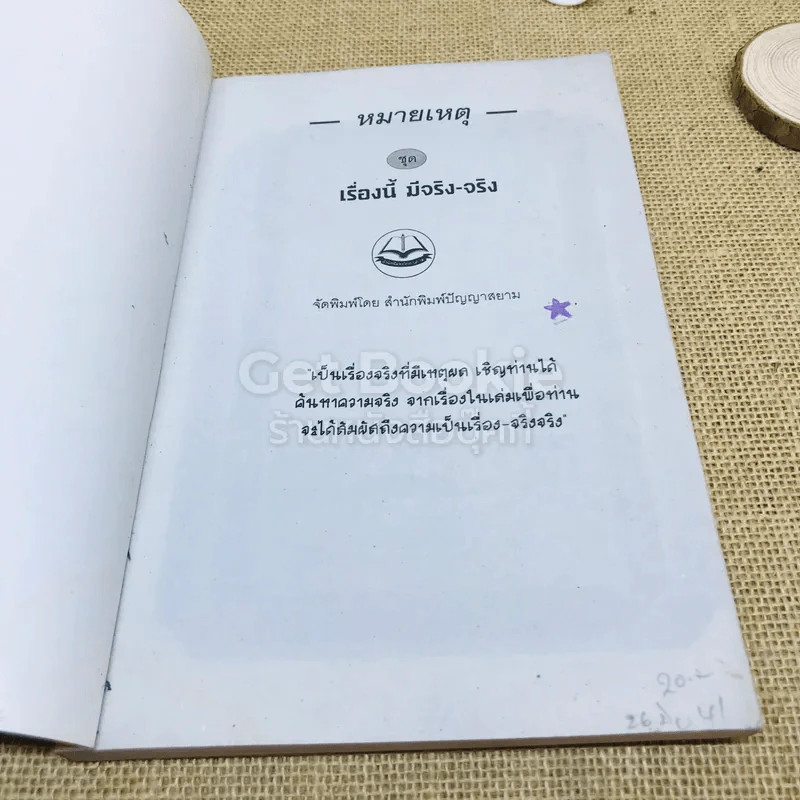 — หมายเหตุ —
ชุด
เรื่องนี้ มีจริง-จริง
จัดพิมพ์โดย สำนักพิมพ์ปัญญาสยาม
"เป็นเรื่องจริงที่มีเหตุผล เชิญท่านได้
ค้นหาความจริง จากเรื่องในเล่มเพื่อท่าน
จะได้สัมผัสถึงความเป็นเรื่อง-จริงจริง"
Get Bookie
ร้านหนังสือบุ๊คกี้
20.-
26 41